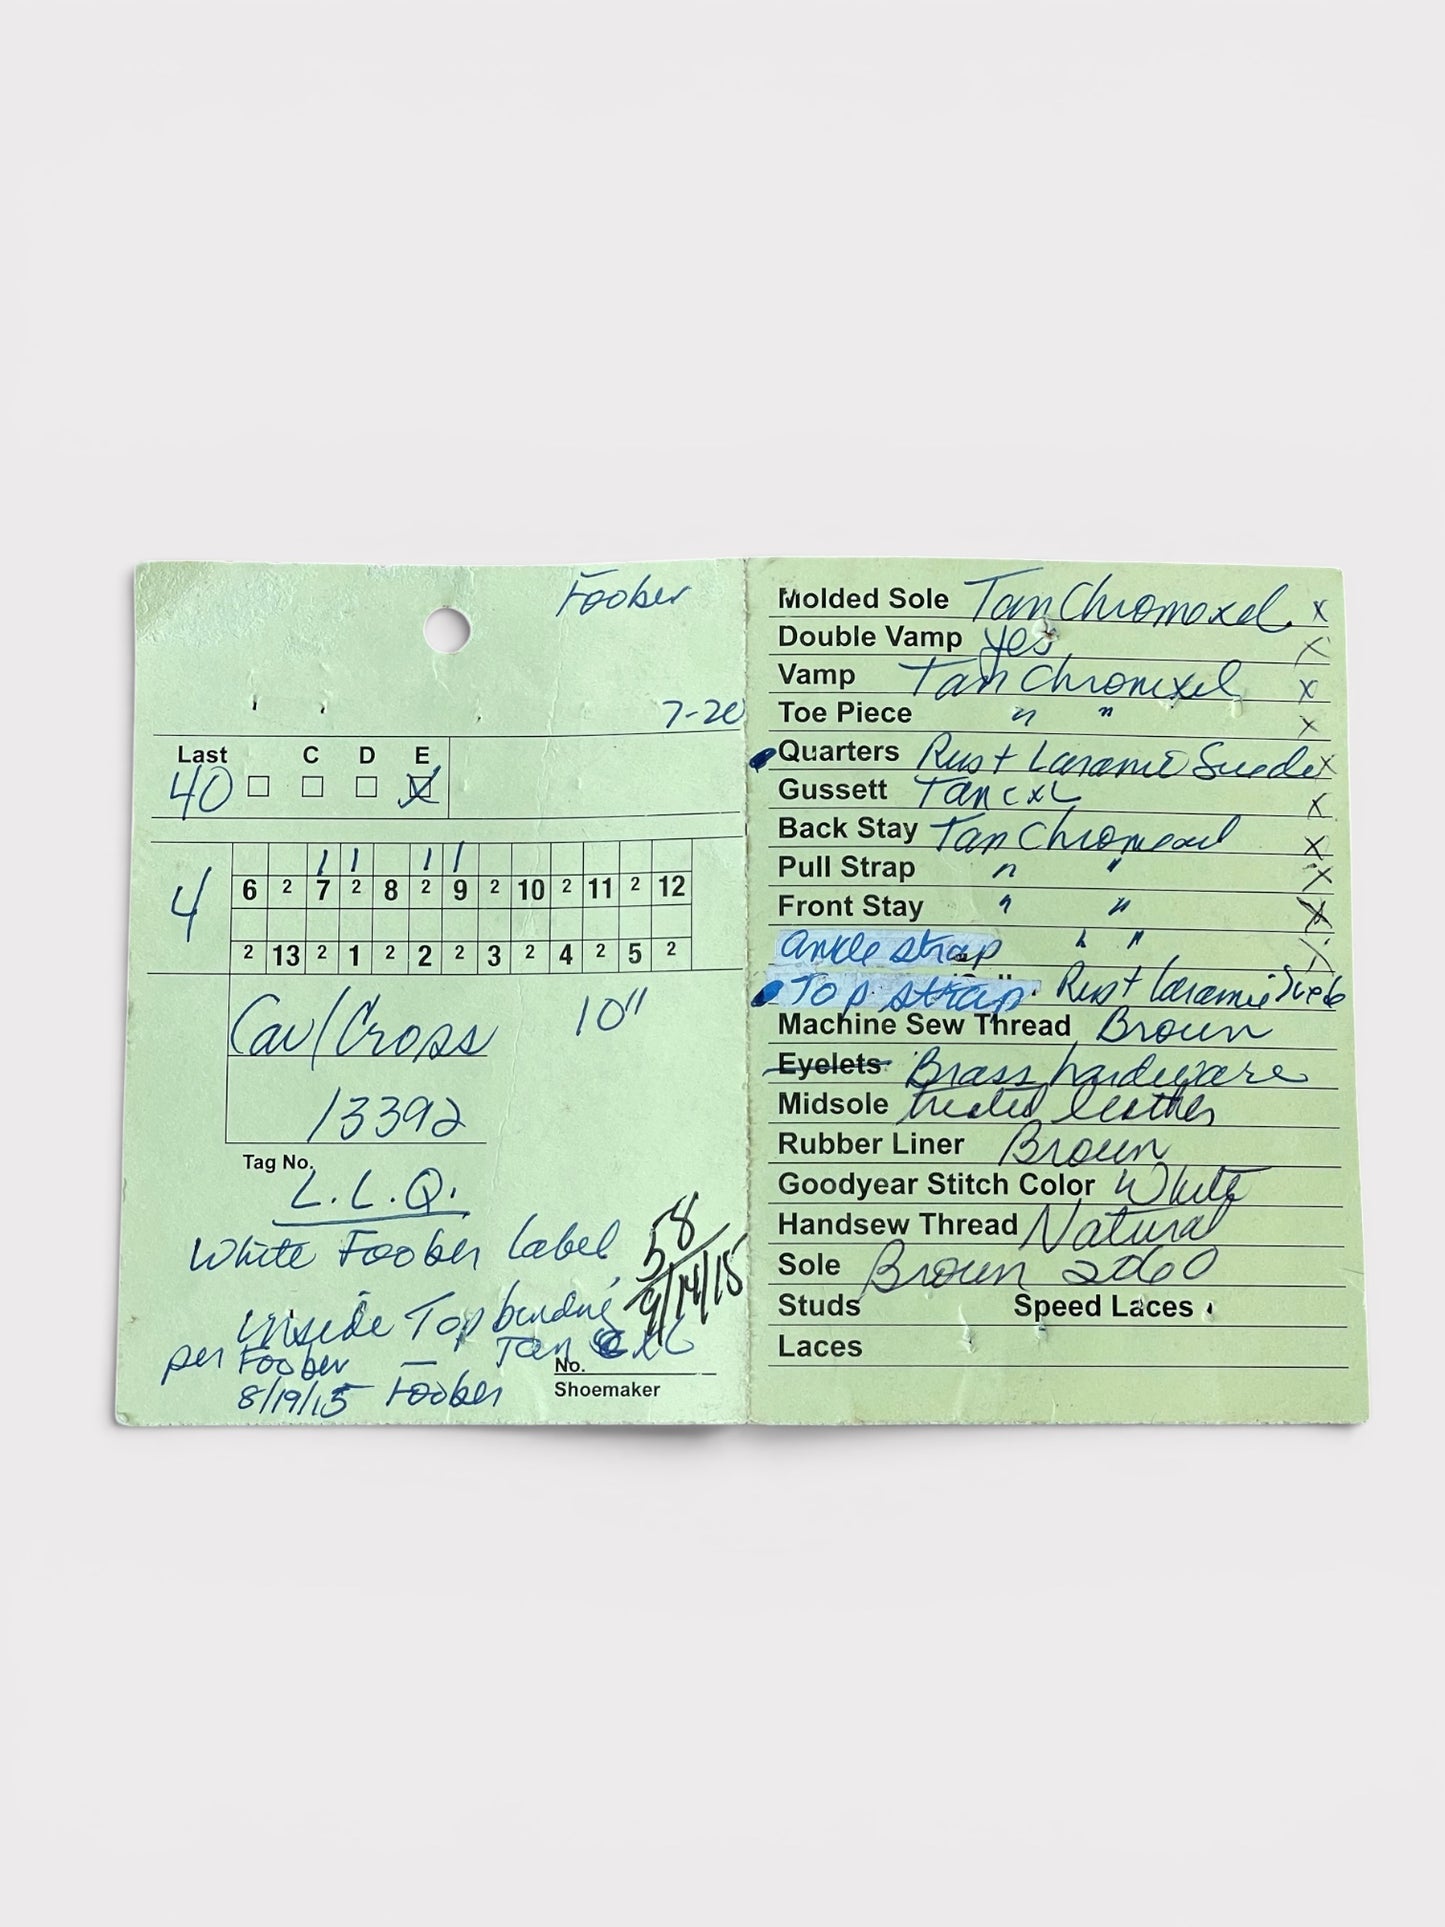 Foober
7-20
Last C D E
40 ☐ ☐ ☐ ☒
4
6 2 7 2 8 2 9 2 10 2 11 2 12
2 13 2 1 2 2 2 3 2 4 2 5 2
Cav/Cross 10"
13392
Tag No.
L.L.Q.
White Foober Label
58
9/14/15
inside Top binding
per Foober — Tan cxl
8/19/15 Foober
No.
Shoemaker
Molded Sole Tan Chromoxel. x
Double Vamp yes x
Vamp Tan Chromexel x
Toe Piece " " x
Quarters Rust Laramie Suede x
Gussett Tan cxL x
Back Stay Tan Chromexel x
Pull Strap " " x
Front Stay " " x
Ankle strap " " x
Top strap Rust Laramie Suede
Machine Sew Thread Brown
Eyelets Brass hardware
Midsole treated leather
Rubber Liner Brown
Goodyear Stitch Color White
Handsew Thread Natural
Sole Brown 2060
Studs Speed Laces
Laces